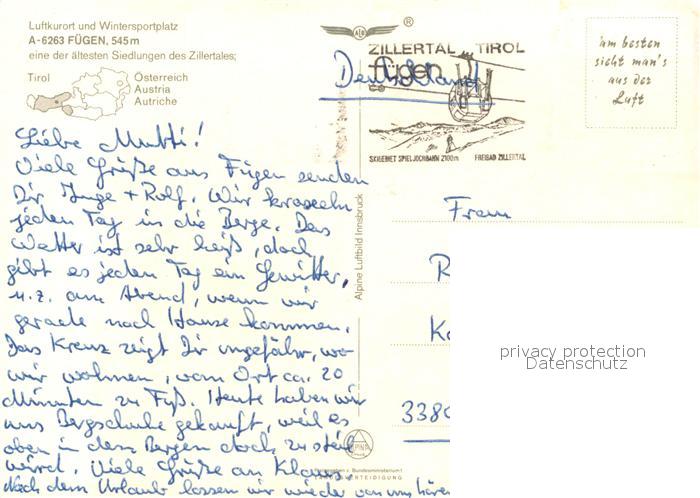 Luftkurort und Wintersportplatz
A-6263 FÜGEN, 545 m
eine der ältesten Siedlungen des Zillertales;
Tirol
Österreich
Austria
Autriche
®
ZILLERTAL TIROL
fügen
SKIGEBIET SPIELJOCHBAHN 2100m FREIBAD ZILLERTAL
Deutschland
am besten
sieht man's
aus der
Luft
Liebe Mutti!
Viele Grüße aus Fügen senden
Dir Inge + Rolf. Wir kraxeln
jeden Tag in die Berge. Das
Wetter ist sehr heiß, doch
gibt es jeden Tag ein Gewitter,
u.z. am Abend, wenn wir
gerade nach Hause kommen.
Das Kreuz zeigt Dir ungefähr, wo
wir wohnen, vom Ort ca. 20
Minuten zu Fuß. Heute haben wir
uns Bergschuhe gekauft, weil es
oben in den Bergen doch zu steil
wird. Viele Grüße an Klaus.
Nach dem Urlaub lassen wir wieder von uns hören
Alpine Luftbild Innsbruck
Frau
R
Ko
338
privacy protection
Datenschutz